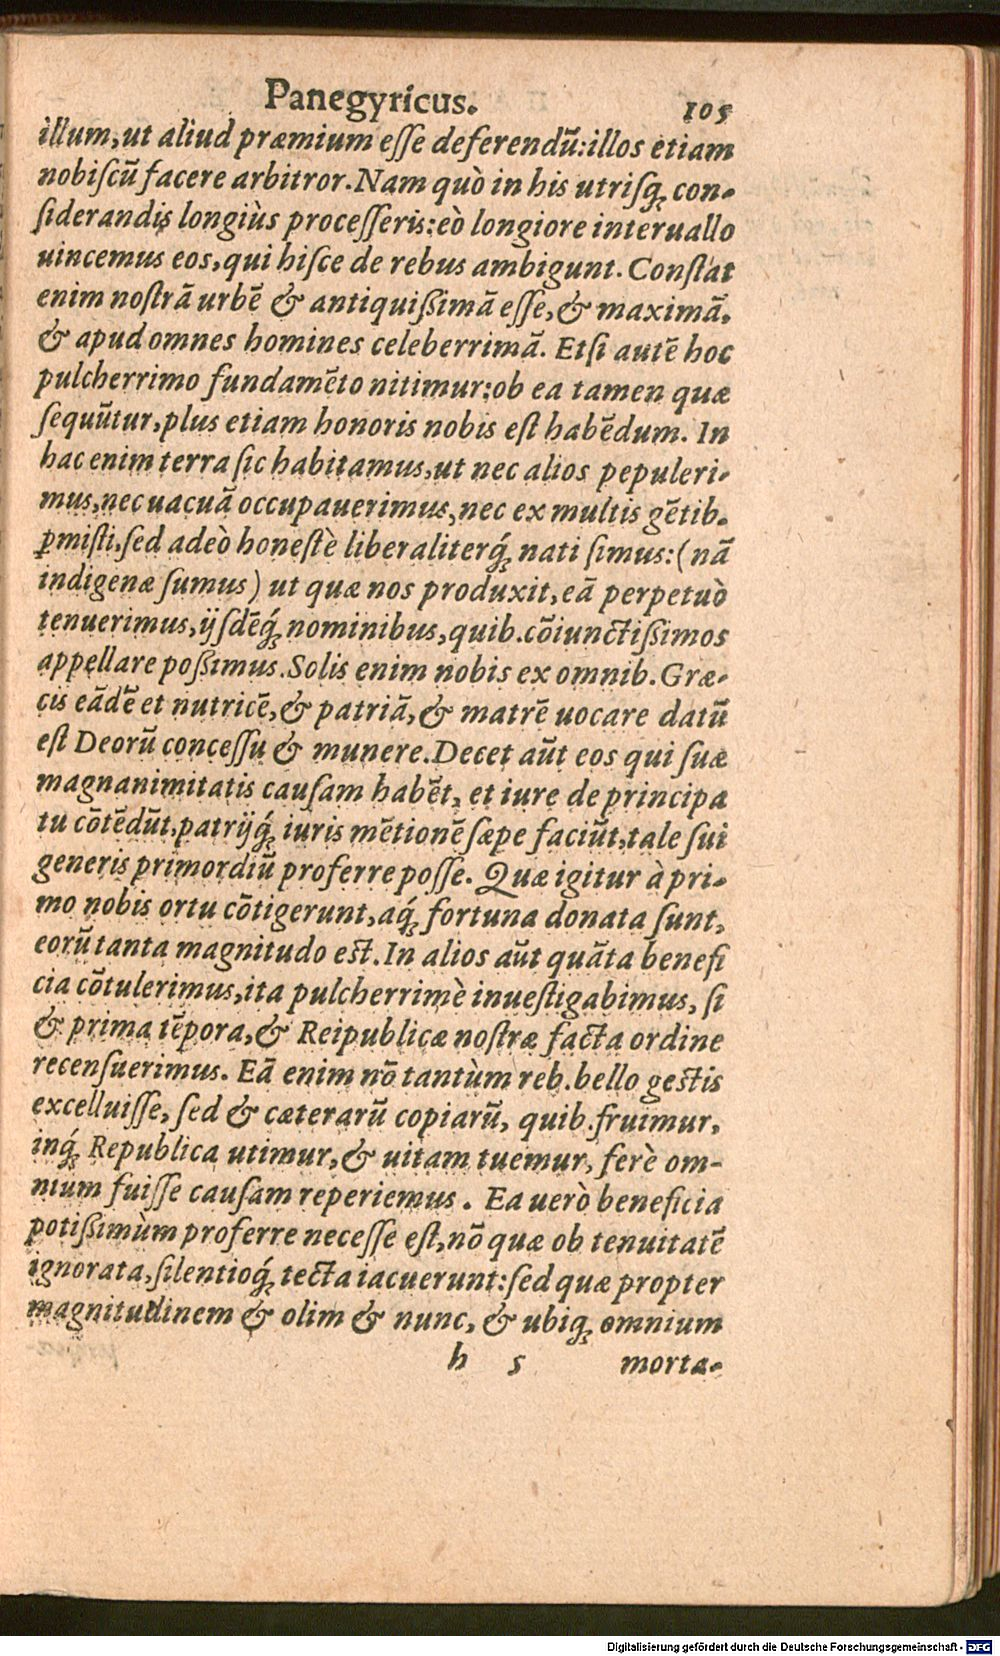 Panegyricus. 105
illum, ut aliud præmium eſſe deferendū: illos etiam
nobiſcū facere arbitror. Nam quò in his utriſq; con-
ſiderandis longiùs proceſſeris: eò longiore interuallo
uincemus eos, qui hiſce de rebus ambigunt. Conſtat
enim noſtrā urbē & antiquiſſimā eſſe, & maximā,
& apud omnes homines celeberrimā. Etſi autē hoc
pulcherrimo fundamēto nitimur: ob ea tamen quæ
ſequūtur, plus etiam honoris nobis eſt habēdum. In
hac enim terra ſic habitamus, ut nec alios pepuleri-
mus, nec uacuā occupauerimus, nec ex multis gētib.
ꝑmiſti, ſed adeò honeſtè liberaliterq́; nati ſimus: (nā
indigenæ ſumus) ut quæ nos produxit, eā perpetuò
tenuerimus, ijſdēq́; nominibus, quib. cōiunctiſſimos
appellare poſſimus. Solis enim nobis ex omnib. Græ-
cis eādē et nutricē, & patriā, & matrē uocare datū
eſt Deorū conceſſu & munere. Decet aūt eos qui ſuæ
magnanimitatis cauſam habēt, et iure de principa
tu cōtēdūt, patrijq́; iuris mētionē ſæpe faciūt, tale ſui
generis primordiū proferre poſſe. Quæ igitur à pri-
mo nobis ortu cōtigerunt, aq́; fortuna donata ſunt,
eorū tanta magnitudo eſt. In alios aūt quāta benefi
cia cōtulerimus, ita pulcherrimè inueſtigabimus, ſi
& prima tēpora, & Reipublicæ noſtræ facta ordine
recenſuerimus. Eā enim nō tantùm reb. bello geſtis
excelluiſſe, ſed & cæterarū copiarū, quib. fruimur,
inq́; Republica utimur, & uitam tuemur, ferè om-
nium fuiſſe cauſam reperiemus. Ea uerò beneficia
potiſſimùm proferre neceſſe eſt, nō quæ ob tenuitatē
ignorata, ſilentioq́; tecta iacuerunt: ſed quæ propter
magnitudinem & olim & nunc, & ubiq; omnium
h 5 morta-
Digitalisierung gefördert durch die Deutsche Forschungsgemeinschaft - DFG